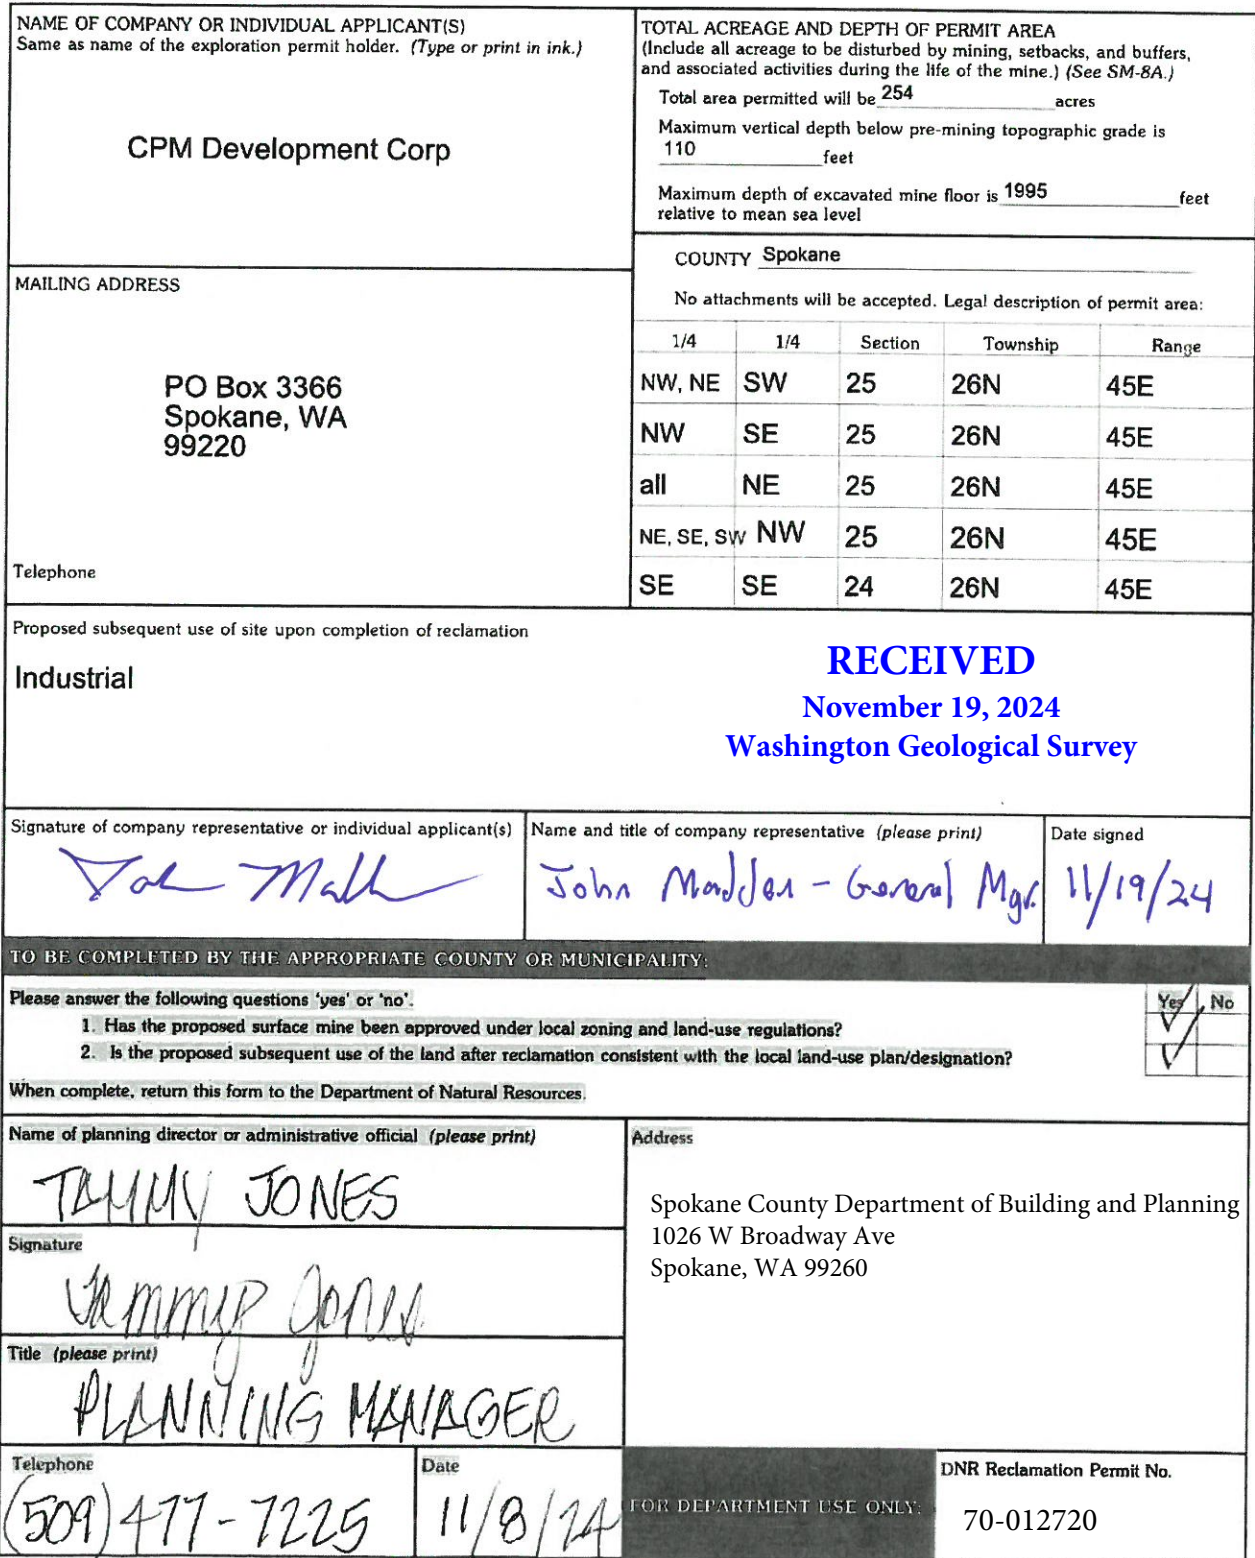 NAME OF COMPANY OR INDIVIDUAL APPLICANT(S)
Same as name of the exploration permit holder. (Type or print in ink.)
CPM Development Corp
TOTAL ACREAGE AND DEPTH OF PERMIT AREA
(Include all acreage to be disturbed by mining, setbacks, and buffers,
and associated activities during the life of the mine.) (See SM-8A.)
Total area permitted will be 254 acres
Maximum vertical depth below pre-mining topographic grade is
110 feet
Maximum depth of excavated mine floor is 1995 feet
relative to mean sea level
MAILING ADDRESS
PO Box 3366
Spokane, WA
99220
Telephone
COUNTY Spokane
No attachments will be accepted. Legal description of permit area:
1/4 1/4 Section Township Range
NW, NE SW 25 26N 45E
NW SE 25 26N 45E
all NE 25 26N 45E
NE, SE, SW NW 25 26N 45E
SE SE 24 26N 45E
Proposed subsequent use of site upon completion of reclamation
Industrial
RECEIVED
November 19, 2024
Washington Geological Survey
Signature of company representative or individual applicant(s)
Name and title of company representative (please print)
John Madden - General Mgr.
Date signed
11/19/24
TO BE COMPLETED BY THE APPROPRIATE COUNTY OR MUNICIPALITY:
Please answer the following questions 'yes' or 'no'.
Yes No
1. Has the proposed surface mine been approved under local zoning and land-use regulations?
2. Is the proposed subsequent use of the land after reclamation consistent with the local land-use plan/designation?
When complete, return this form to the Department of Natural Resources.
Name of planning director or administrative official (please print)
TAMMY JONES
Address
Spokane County Department of Building and Planning
1026 W Broadway Ave
Spokane, WA 99260
Signature
Tammy Jones
Title (please print)
PLANNING MANAGER
Telephone
(509) 477-7225
Date
11/8/24
FOR DEPARTMENT USE ONLY:
DNR Reclamation Permit No.
70-012720